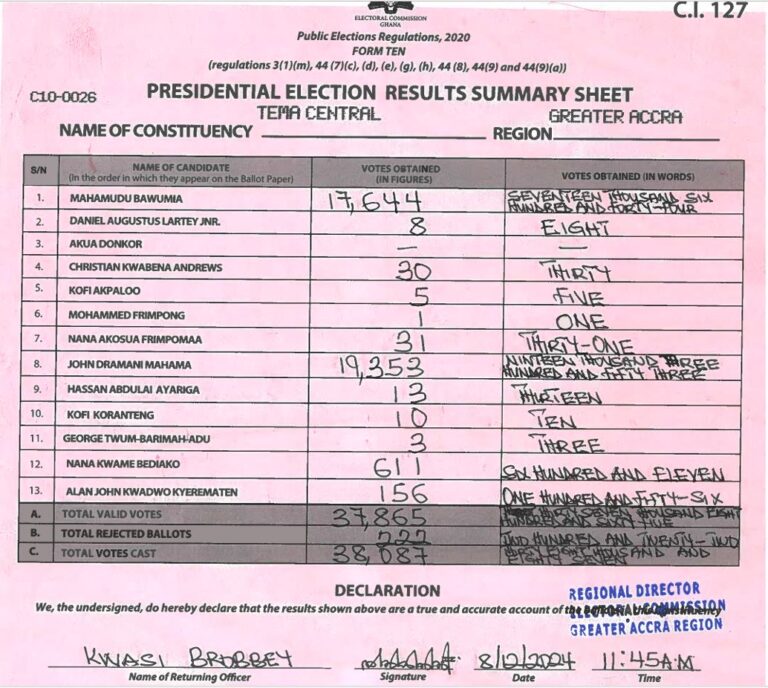 C.I. 127
ELECTORAL COMMISSION
GHANA
Public Elections Regulations, 2020
FORM TEN
(regulations 3(1)(m), 44 (7)(c), (d), (e), (g), (h), 44 (8), 44(9) and 44(9)(a))
C10-0026
PRESIDENTIAL ELECTION RESULTS SUMMARY SHEET
NAME OF CONSTITUENCY TEMA CENTRAL REGION GREATER ACCRA
S/N NAME OF CANDIDATE (In the order in which they appear on the Ballot Paper) VOTES OBTAINED (IN FIGURES) VOTES OBTAINED (IN WORDS)
1. MAHAMUDU BAWUMIA 17,644 SEVENTEEN THOUSAND SIX HUNDRED AND FORTY-FOUR
2. DANIEL AUGUSTUS LARTEY JNR. 8 EIGHT
3. AKUA DONKOR — —
4. CHRISTIAN KWABENA ANDREWS 30 THIRTY
5. KOFI AKPALOO 5 FIVE
6. MOHAMMED FRIMPONG 1 ONE
7. NANA AKOSUA FRIMPOMAA 31 THIRTY-ONE
8. JOHN DRAMANI MAHAMA 19,353 NINTEEN THOUSAND THREE HUNDRED AND FIFTY THREE
9. HASSAN ABDULAI AYARIGA 13 THIRTEEN
10. KOFI KORANTENG 10 TEN
11. GEORGE TWUM-BARIMAH-ADU 3 THREE
12. NANA KWAME BEDIAKO 611 SIX HUNDRED AND ELEVEN
13. ALAN JOHN KWADWO KYEREMATEN 156 ONE HUNDRED AND FIFTY-SIX
A. TOTAL VALID VOTES 37,865 THIRTY SEVEN THOUSAND EIGHT HUNDRED AND SIXTY FIVE
B. TOTAL REJECTED BALLOTS 222 TWO HUNDRED AND TWENTY-TWO
C. TOTAL VOTES CAST 38,087 THIRTY EIGHT THOUSAND AND EIGHTY SEVEN
DECLARATION
We, the undersigned, do hereby declare that the results shown above are a true and accurate account of the
REGIONAL DIRECTOR
ELECTORAL COMMISSION
GREATER ACCRA REGION
KWASI BROBBEY 8/12/2024 11:45AM
Name of Returning Officer Signature Date Time